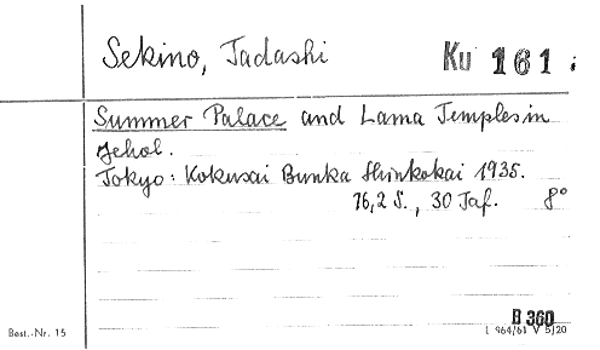 Sekino, Tadashi Ku 161 i
Summer Palace and Lama Temples in
Jehol.
Tokyo: Kokusai Bunka Shinkokai 1935.
76,2 S., 30 Taf. 8°
B 360
Best.-Nr. 15 I 964/61 V 5/20